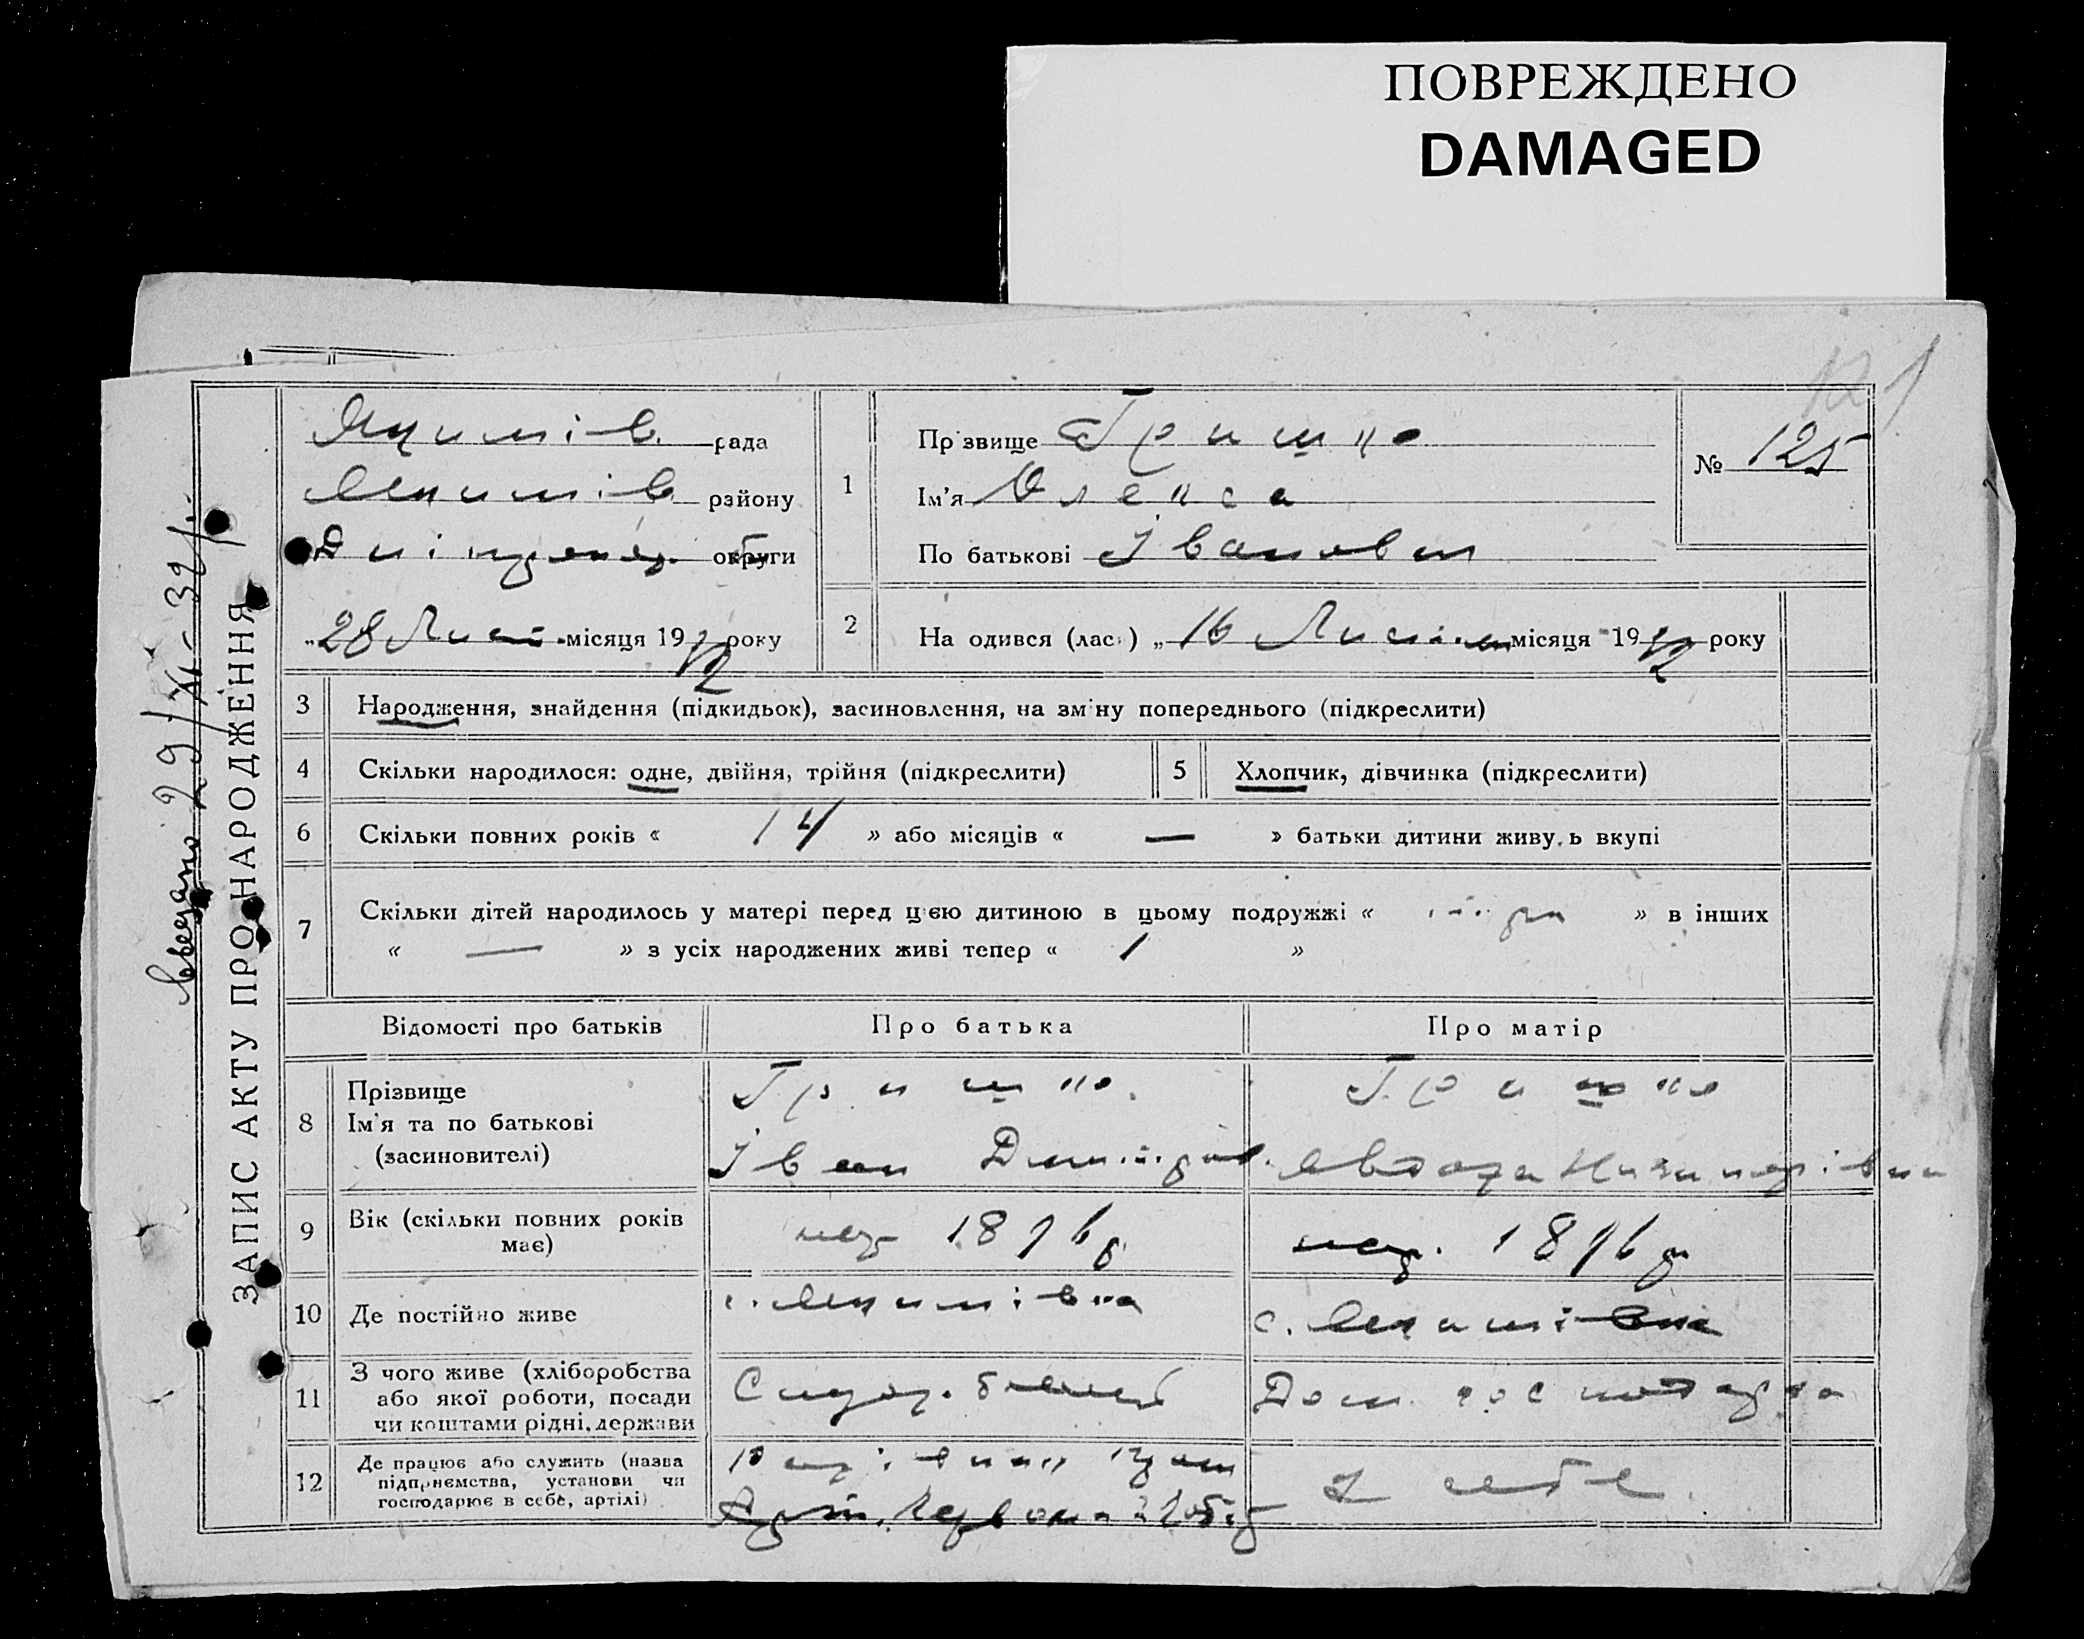 ПОВРЕЖДЕНО
DAMAGED
ЗАПИС АКТУ ПРО НАРОДЖЕННЯ
Якимів. рада
Якимів району
округи
„28 Лист. місяця 1932 року
1
Прізвище Гришко
Ім'я Олекса
По батькові Іванович
№ 125
2
На одився (лась) „16 Листоп місяця 1932 року
3 Народження, знайдення (підкидьок), засиновлення, на зміну попереднього (підкреслити)
4 Скільки народилося: одне, двійня, трійня (підкреслити)
5 Хлопчик, дівчинка (підкреслити)
6 Скільки повних років « 14 » або місяців « — » батьки дитини живуть вкупі
7 Скільки дітей народилось у матері перед цією дитиною в цьому подружжі « » в інших
« — » з усіх народжених живі тепер « 1 »
Відомості про батьків Про батька Про матір
8 Прізвище
Ім'я та по батькові
(засиновителі)
Гришко.
Іван
Гришко
Явдоха
9 Вік (скільки повних років
має)
1896 р
1896 р
10 Де постійно живе
с. Якимівка
с. Якимівка
11 З чого живе (хліборобства
або якої роботи, посади
чи коштами рідні, держави
Дом. господарка
12 Де працює або служить (назва
підприємства, установи чи
господарює в себе, артілі)
У себе.
29/XI-32 р.